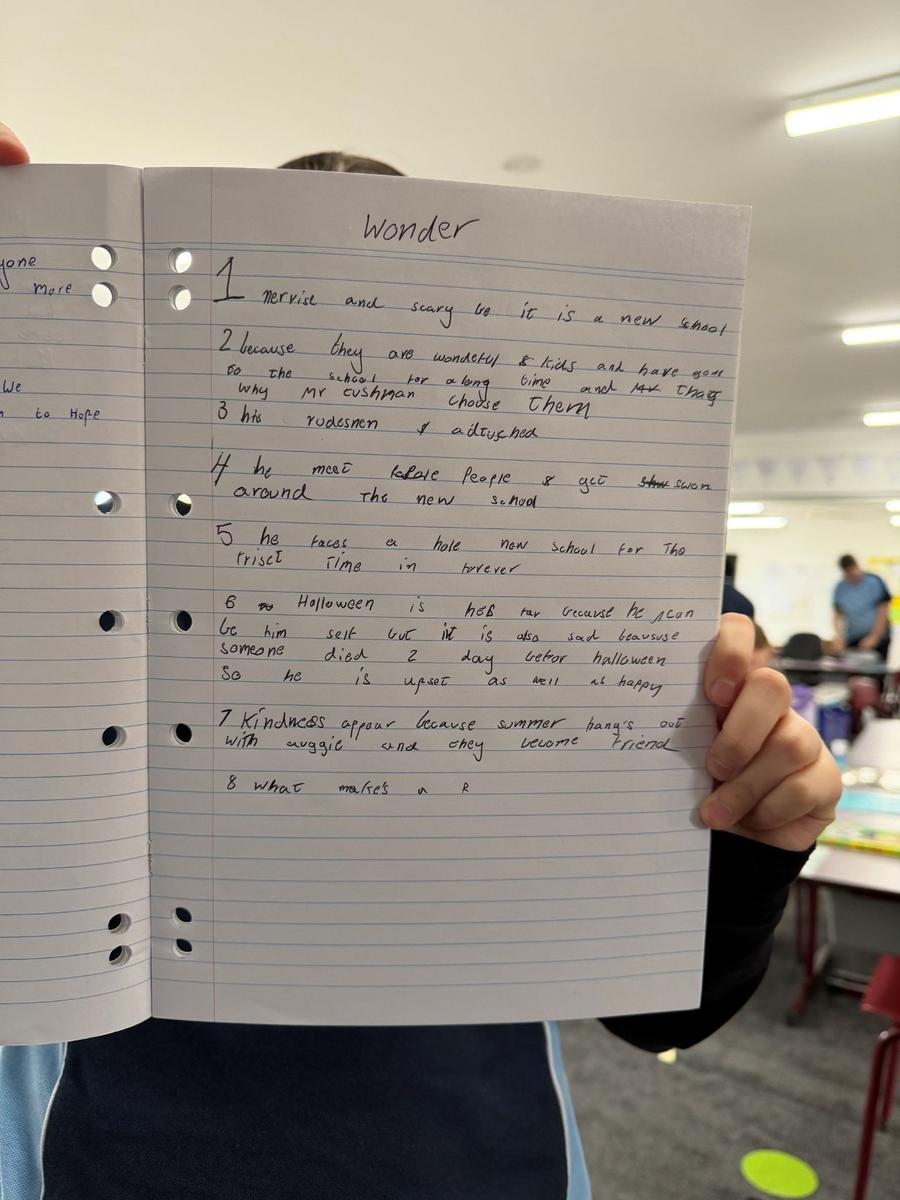 yone
more
We
to Hope
Wonder
1 nervise and scary be it is a new school
2 because they are wondeful & kids and have
to the school for a long time and thats
why Mr cushman choose them
3 his rudesnen & adtuched
4 he meet people & get swon
around the new school
5 he faces a hole new school for the
frisct time in forever
6 Halloween is his far because he scan
be him self but it is also sad beaususe
someone died 2 day befor halloween
So he is upset as well as happy
7 Kindness appour because summer hang's out
with auggie and they become friend
8 what make's a R